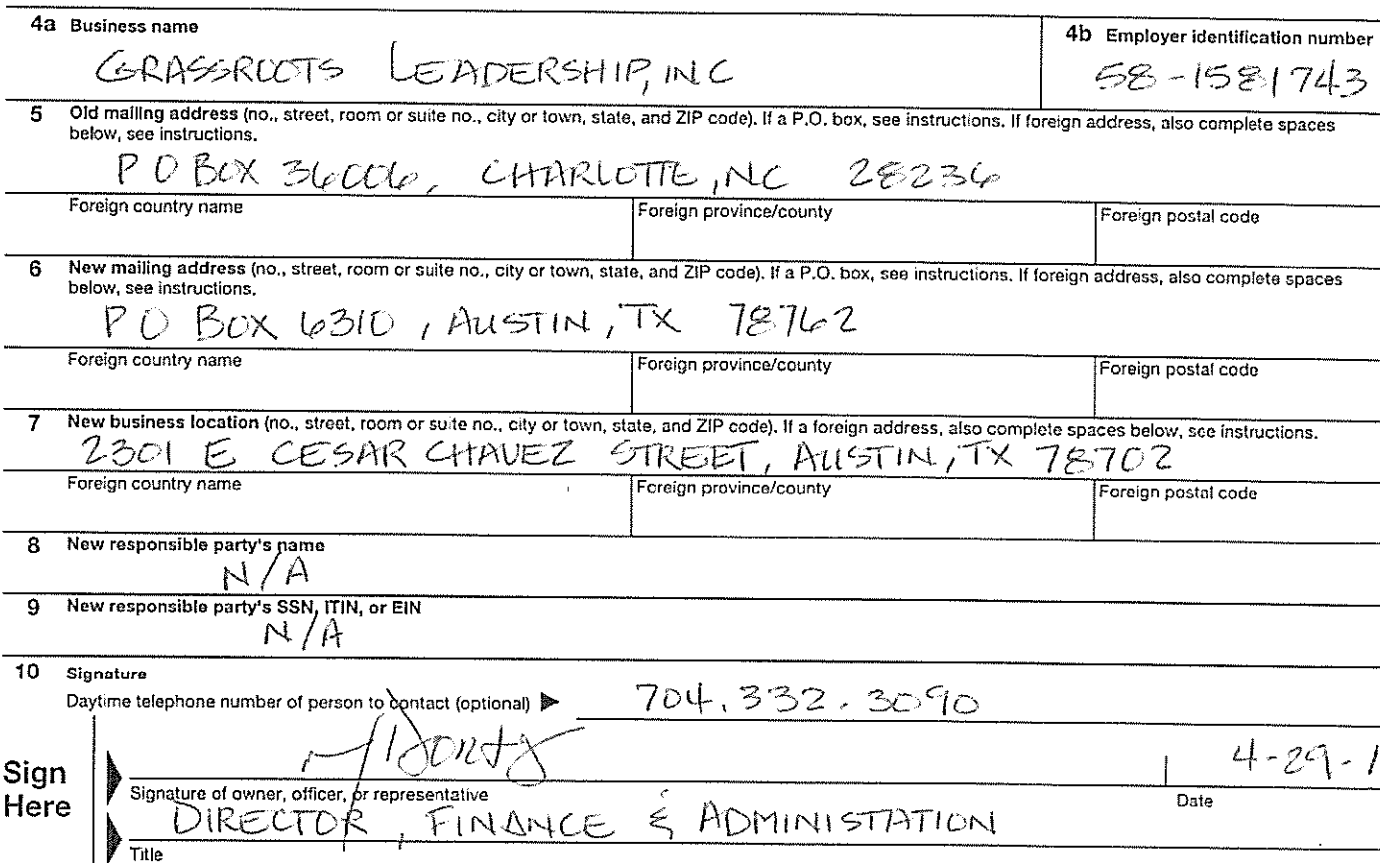 4a Business name
4b Employer identification number
GRASSROOTS LEADERSHIP, INC
58-1581743
5 Old mailing address (no., street, room or suite no., city or town, state, and ZIP code). If a P.O. box, see instructions. If foreign address, also complete spaces
below, see instructions.
P O BOX 36006, CHARLOTTE, NC 28236
Foreign country name Foreign province/county Foreign postal code
6 New mailing address (no., street, room or suite no., city or town, state, and ZIP code). If a P.O. box, see instructions. If foreign address, also complete spaces
below, see instructions.
P O BOX 6310, AUSTIN, TX 78762
Foreign country name Foreign province/county Foreign postal code
7 New business location (no., street, room or suite no., city or town, state, and ZIP code). If a foreign address, also complete spaces below, see instructions.
2301 E CESAR CHAVEZ STREET, AUSTIN, TX 78702
Foreign country name Foreign province/county Foreign postal code
8 New responsible party's name
N/A
9 New responsible party's SSN, ITIN, or EIN
N/A
10 Signature
Daytime telephone number of person to contact (optional) ▶ 704.332.3090
4-29-1
Sign
Here
Signature of owner, officer, or representative Date
DIRECTOR, FINANCE & ADMINISTATION
Title